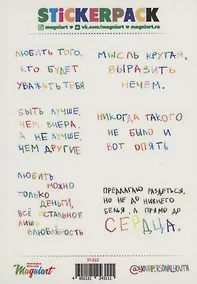 STICKERPACK
magniart
vk.com/magniart
magniart.ru
ЛЮБИТЬ ТОГО,
КТО БУДЕТ
УВАЖАТЬ ТЕБЯ
МЫСЛЬ КРУТАЯ,
ВЫРАЗИТЬ
НЕЧЕМ.
БЫТЬ ЛУЧШЕ,
ЧЕМ ВЧЕРА,
А НЕ ЛУЧШЕ,
ЧЕМ ДРУГИЕ
НИКОГДА ТАКОГО
НЕ БЫЛО И
ВОТ ОПЯТЬ
ЛЮБИТЬ МОЖНО
ТОЛЬКО
ДЕНЬГИ,
ВСЁ ОСТАЛЬНОЕ
ЛИШЬ
ВЛЮБЛЁННОСТЬ
ПРЕДЛАГАЮ РАЗДЕТЬСЯ,
НО НЕ ДО НИЖНЕГО
БЕЛЬЯ, А ПРЯМО ДО
СЕРДЦА.
Magniart
ST-022
@YOURPERSONALYOUTH